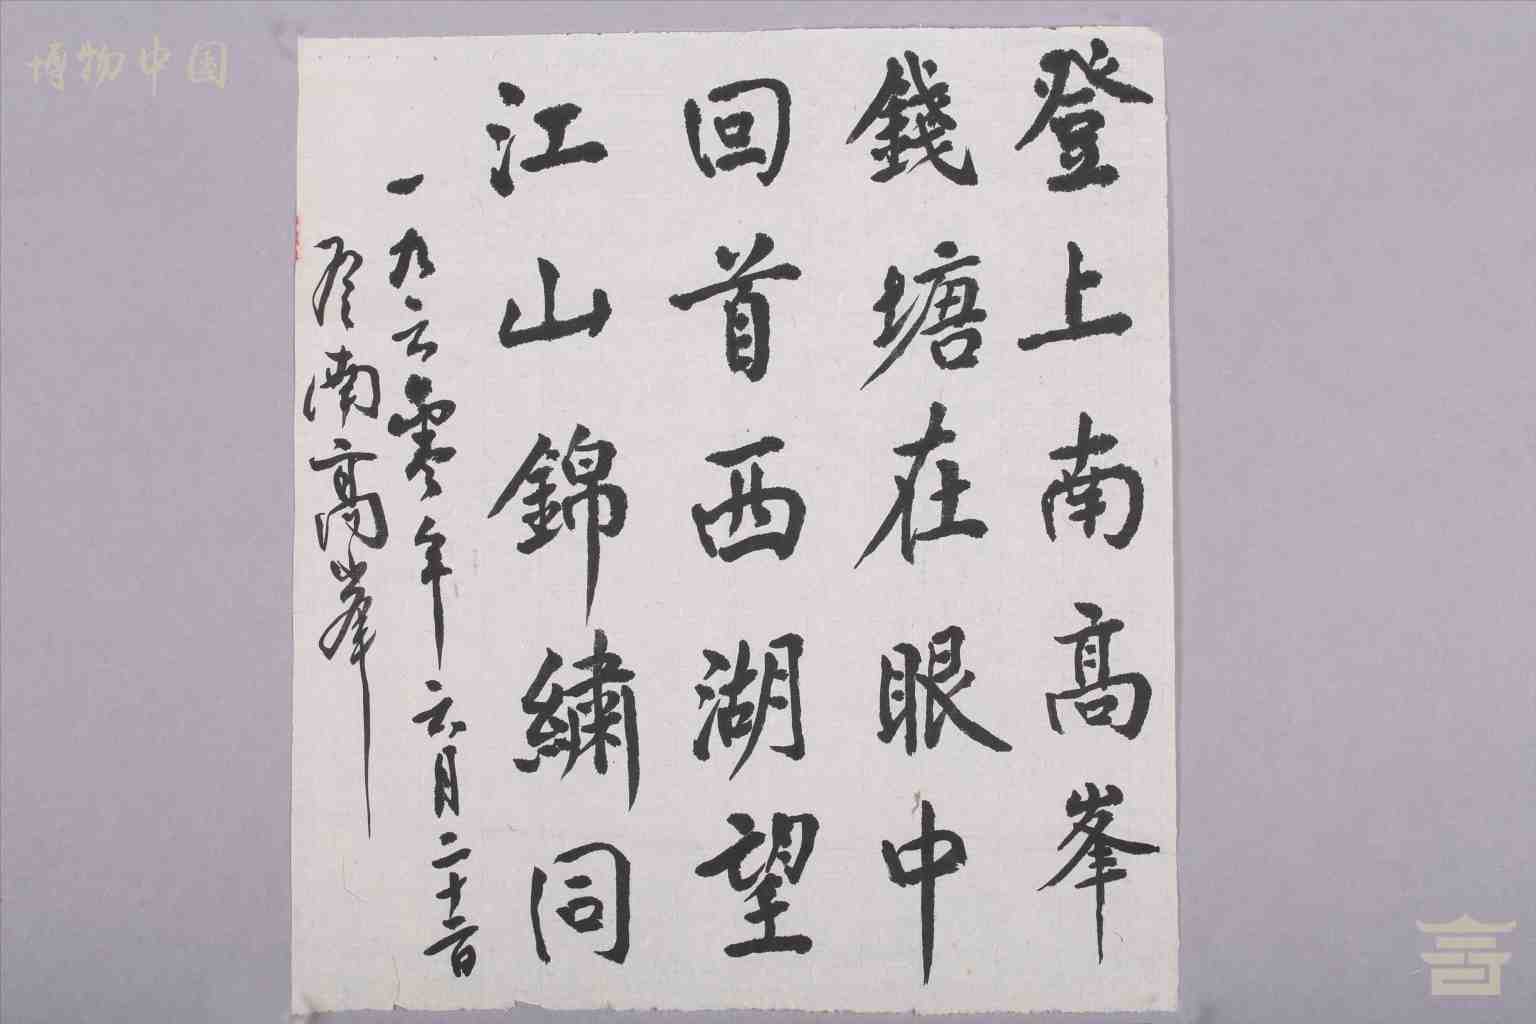 登上南高峯
錢塘在眼中
回首西湖望
江山錦繡同
一九六零年六月二十六日
登南高峯
博物中国